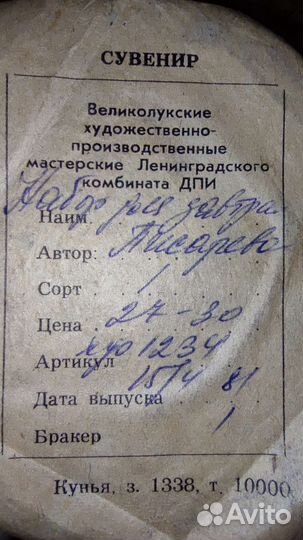 СУВЕНИР
Великолукские
художественно-
производственные
мастерские Ленинградского
комбината ДПИ
Наим. Набор рса завтрак
Автор: Писарева
Сорт 1
Цена 27-30
Артикул худ 1234
Дата выпуска 15/4 81
Бракер 1
Кунья, з. 1338, т. 10000
Avito